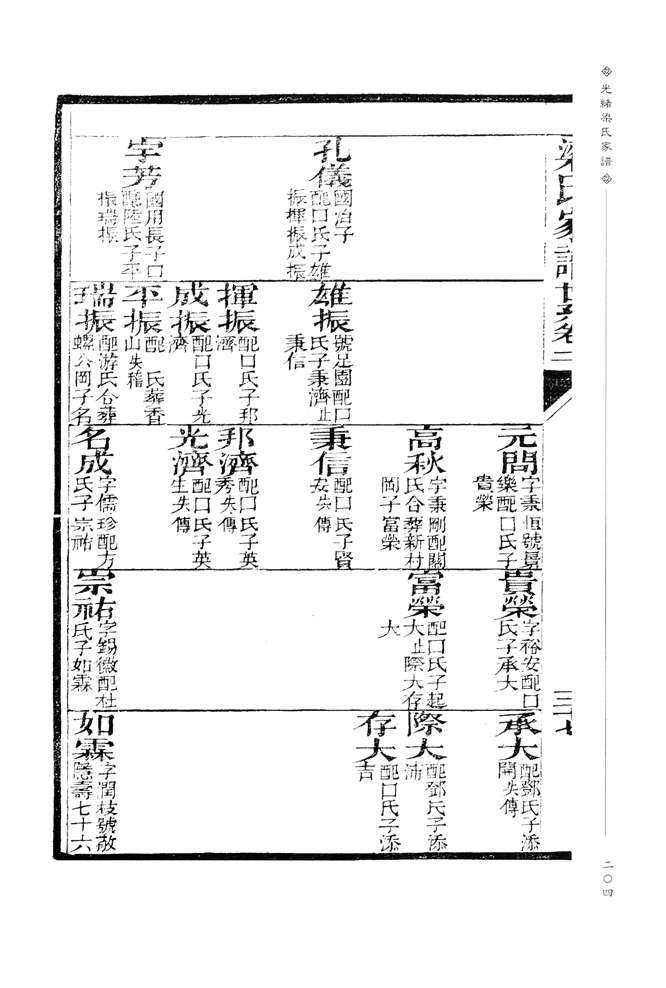 光緒梁氏家譜
二〇四
梁氏家譜世系卷二
三十七
孔儀
國治子
配口氏子雄
振揮振成振
宇芳
國用長子口
配陸氏子平
振瑞振
雄振
號足園配口
氏子秉濟止
秉信
揮振
配口氏子邦
濟
成振
配口氏子光
濟
平振
配 氏葬香
山失稽
瑞振
配游氏合葬
螺公岡子名
元間
字秉恒號景
樂配口氏子
貴榮
高秋
字秉剛配關
氏合葬新村
岡子富榮
秉信
配口氏子賢
安失傳
邦濟
配口氏子英
秀失傳
光濟
配口氏子英
生失傳
名成
字儒珍配方
氏子宗祐
貴榮
字裕安配口
氏子承大
富榮
配口氏子起
大止際大存
大
宗祐
字錫徽配杜
氏子如霖
承大
配鄧氏子添
開失傳
際大
配鄧氏子添
沛
存大
配口氏子添
吉
如霖
字閏枝號敬
隱壽七十六